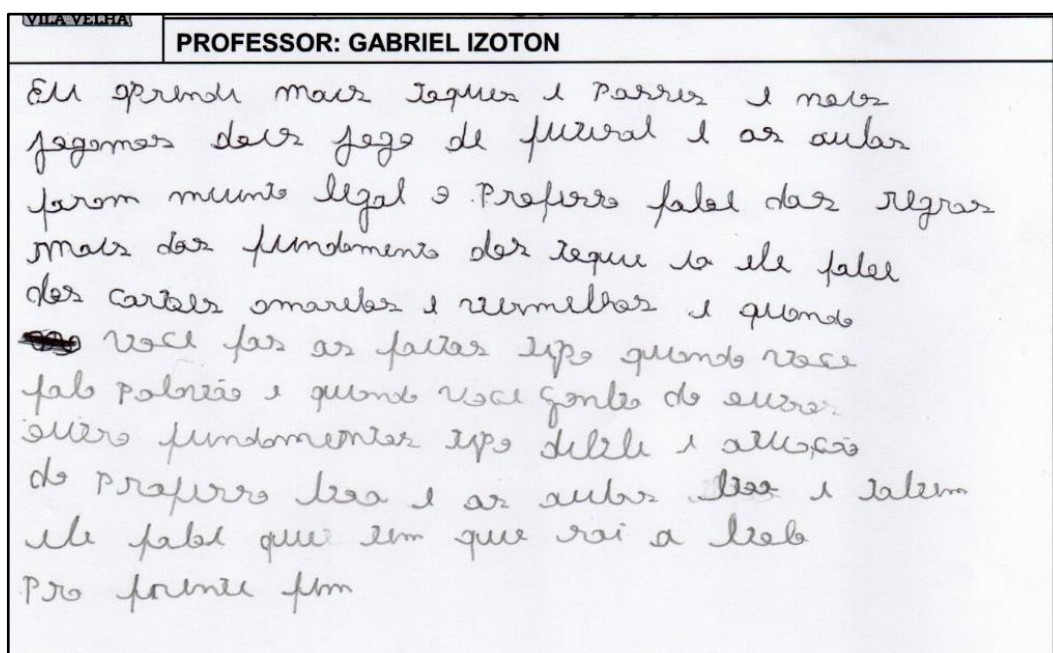 VILA VELHA
PROFESSOR: GABRIEL IZOTON
Eu aprendi mais toques e Passes e nois
jogomos dois jogo de futsal e as aulas
forom muinto legal o Profesro falol das regras
mais dos fundamento dos toque la ele falol
dos cartois amarelos e vermelhos e quando
voce fas as faltas tipo quando voce
fala Palavrão e quando voce do outros
outro fundamentos tipo e atuação
do Profesro boa e as aulas boa e talem
ele falol que tem que sai a bola
Pro frente fim